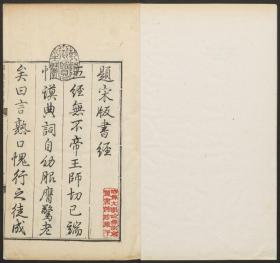 題宋版書經
五經無不帝王師切己端
惟謨典詞自幼服膺驚老
矣曰言熟口愧行之徒成